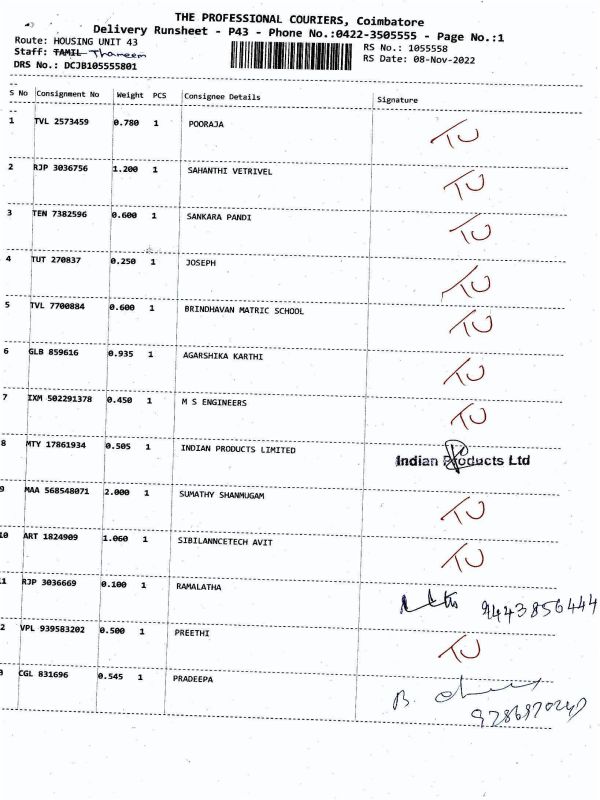 THE PROFESSIONAL COURIERS, Coimbatore
Delivery Runsheet - P43 - Phone No.:0422-3505555 - Page No.:1
Route: HOUSING UNIT 43
RS No.: 1055558
Staff: TAMIL Thameem
RS Date: 08-Nov-2022
DRS No.: DCJB105555801
S No Consignment No Weight PCS Consignee Details Signature
1 TVL 2573459 0.780 1 POORAJA TU
2 RJP 3036756 1.200 1 SAHANTHI VETRIVEL TU
3 TEN 7382596 0.600 1 SANKARA PANDI TU
4 TUT 270837 0.250 1 JOSEPH TU
5 TVL 7700884 0.600 1 BRINDHAVAN MATRIC SCHOOL TU
6 GLB 859616 0.935 1 AGARSHIKA KARTHI TU
7 IXM 502291378 0.450 1 M S ENGINEERS TU
8 MTY 17861934 0.505 1 INDIAN PRODUCTS LIMITED Indian Products Ltd
9 MAA 568548071 2.000 1 SUMATHY SHANMUGAM TU
10 ART 1824909 1.060 1 SIBILANNCETECH AVIT TU
1 RJP 3036669 0.100 1 RAMALATHA 9443856444
2 VPL 939583202 0.500 1 PREETHI TU
CGL 831696 0.545 1 PRADEEPA B.